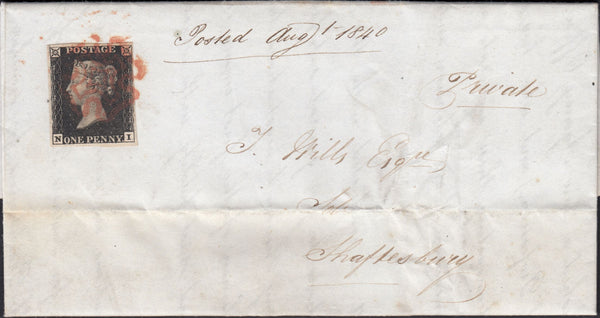 POSTAGE
N ONE PENNY I
Posted Augt 1840
Private
J. Wills Esqre
Shaftesbury